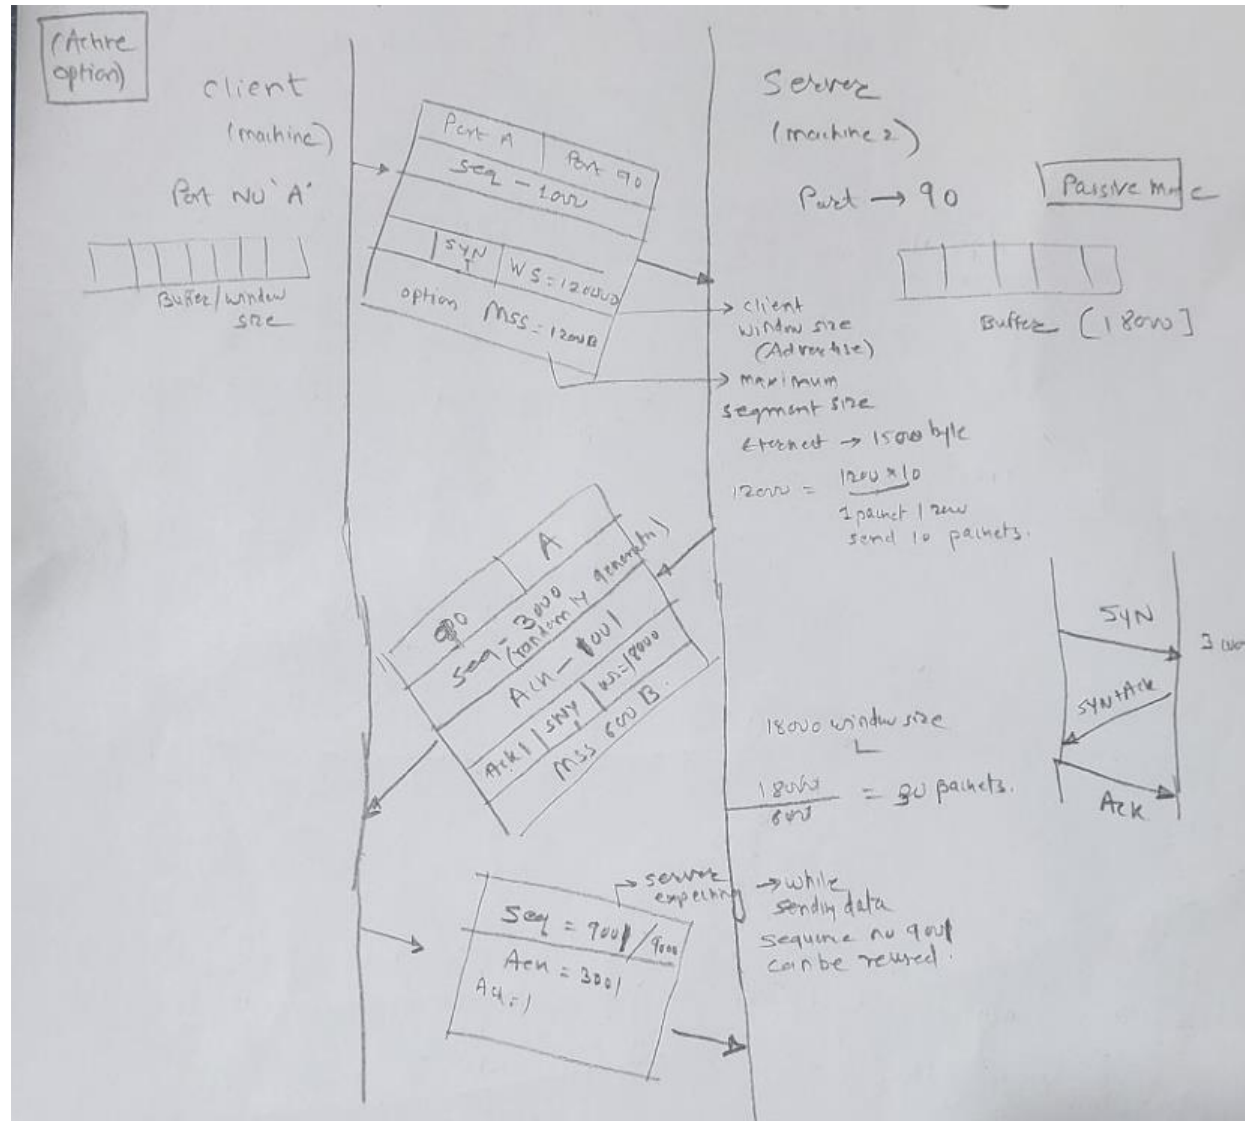 (Active
option)
client
(machine)
Port NU 'A'
Buffer/window
size
Port A | Port 90
Seq - 1000
SYN
1
WS = 12000
option MSS = 1200B
Server
(machine 2)
Port → 90
Passive mode
Buffer [18000]
→ client
window size
(Advertise)
→ maximum
segment size
Eternet → 1500 byte
12000 = 1200 * 10
1 packet 1200
send 10 packets.
90 | A
Seq = 3000
(randomly generate)
Ack - 1001
Ack 1 | SNY | WS = 18000
1
MSS 600 B.
18000 window size
18000
600
= 30 packets.
SYN
SYN+Ack
Ack
3
→ server
expecting
Seq = 9001/9000
Ack = 3001
Ack = 1
→ while
sending data
sequence no 9001
can be reused.